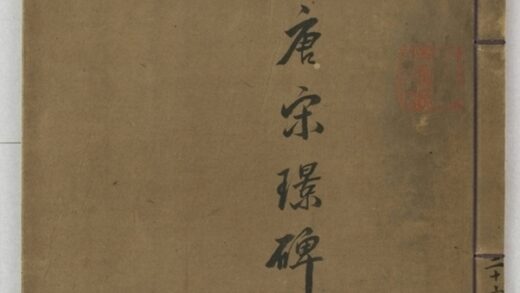 唐宋璟碑
二十